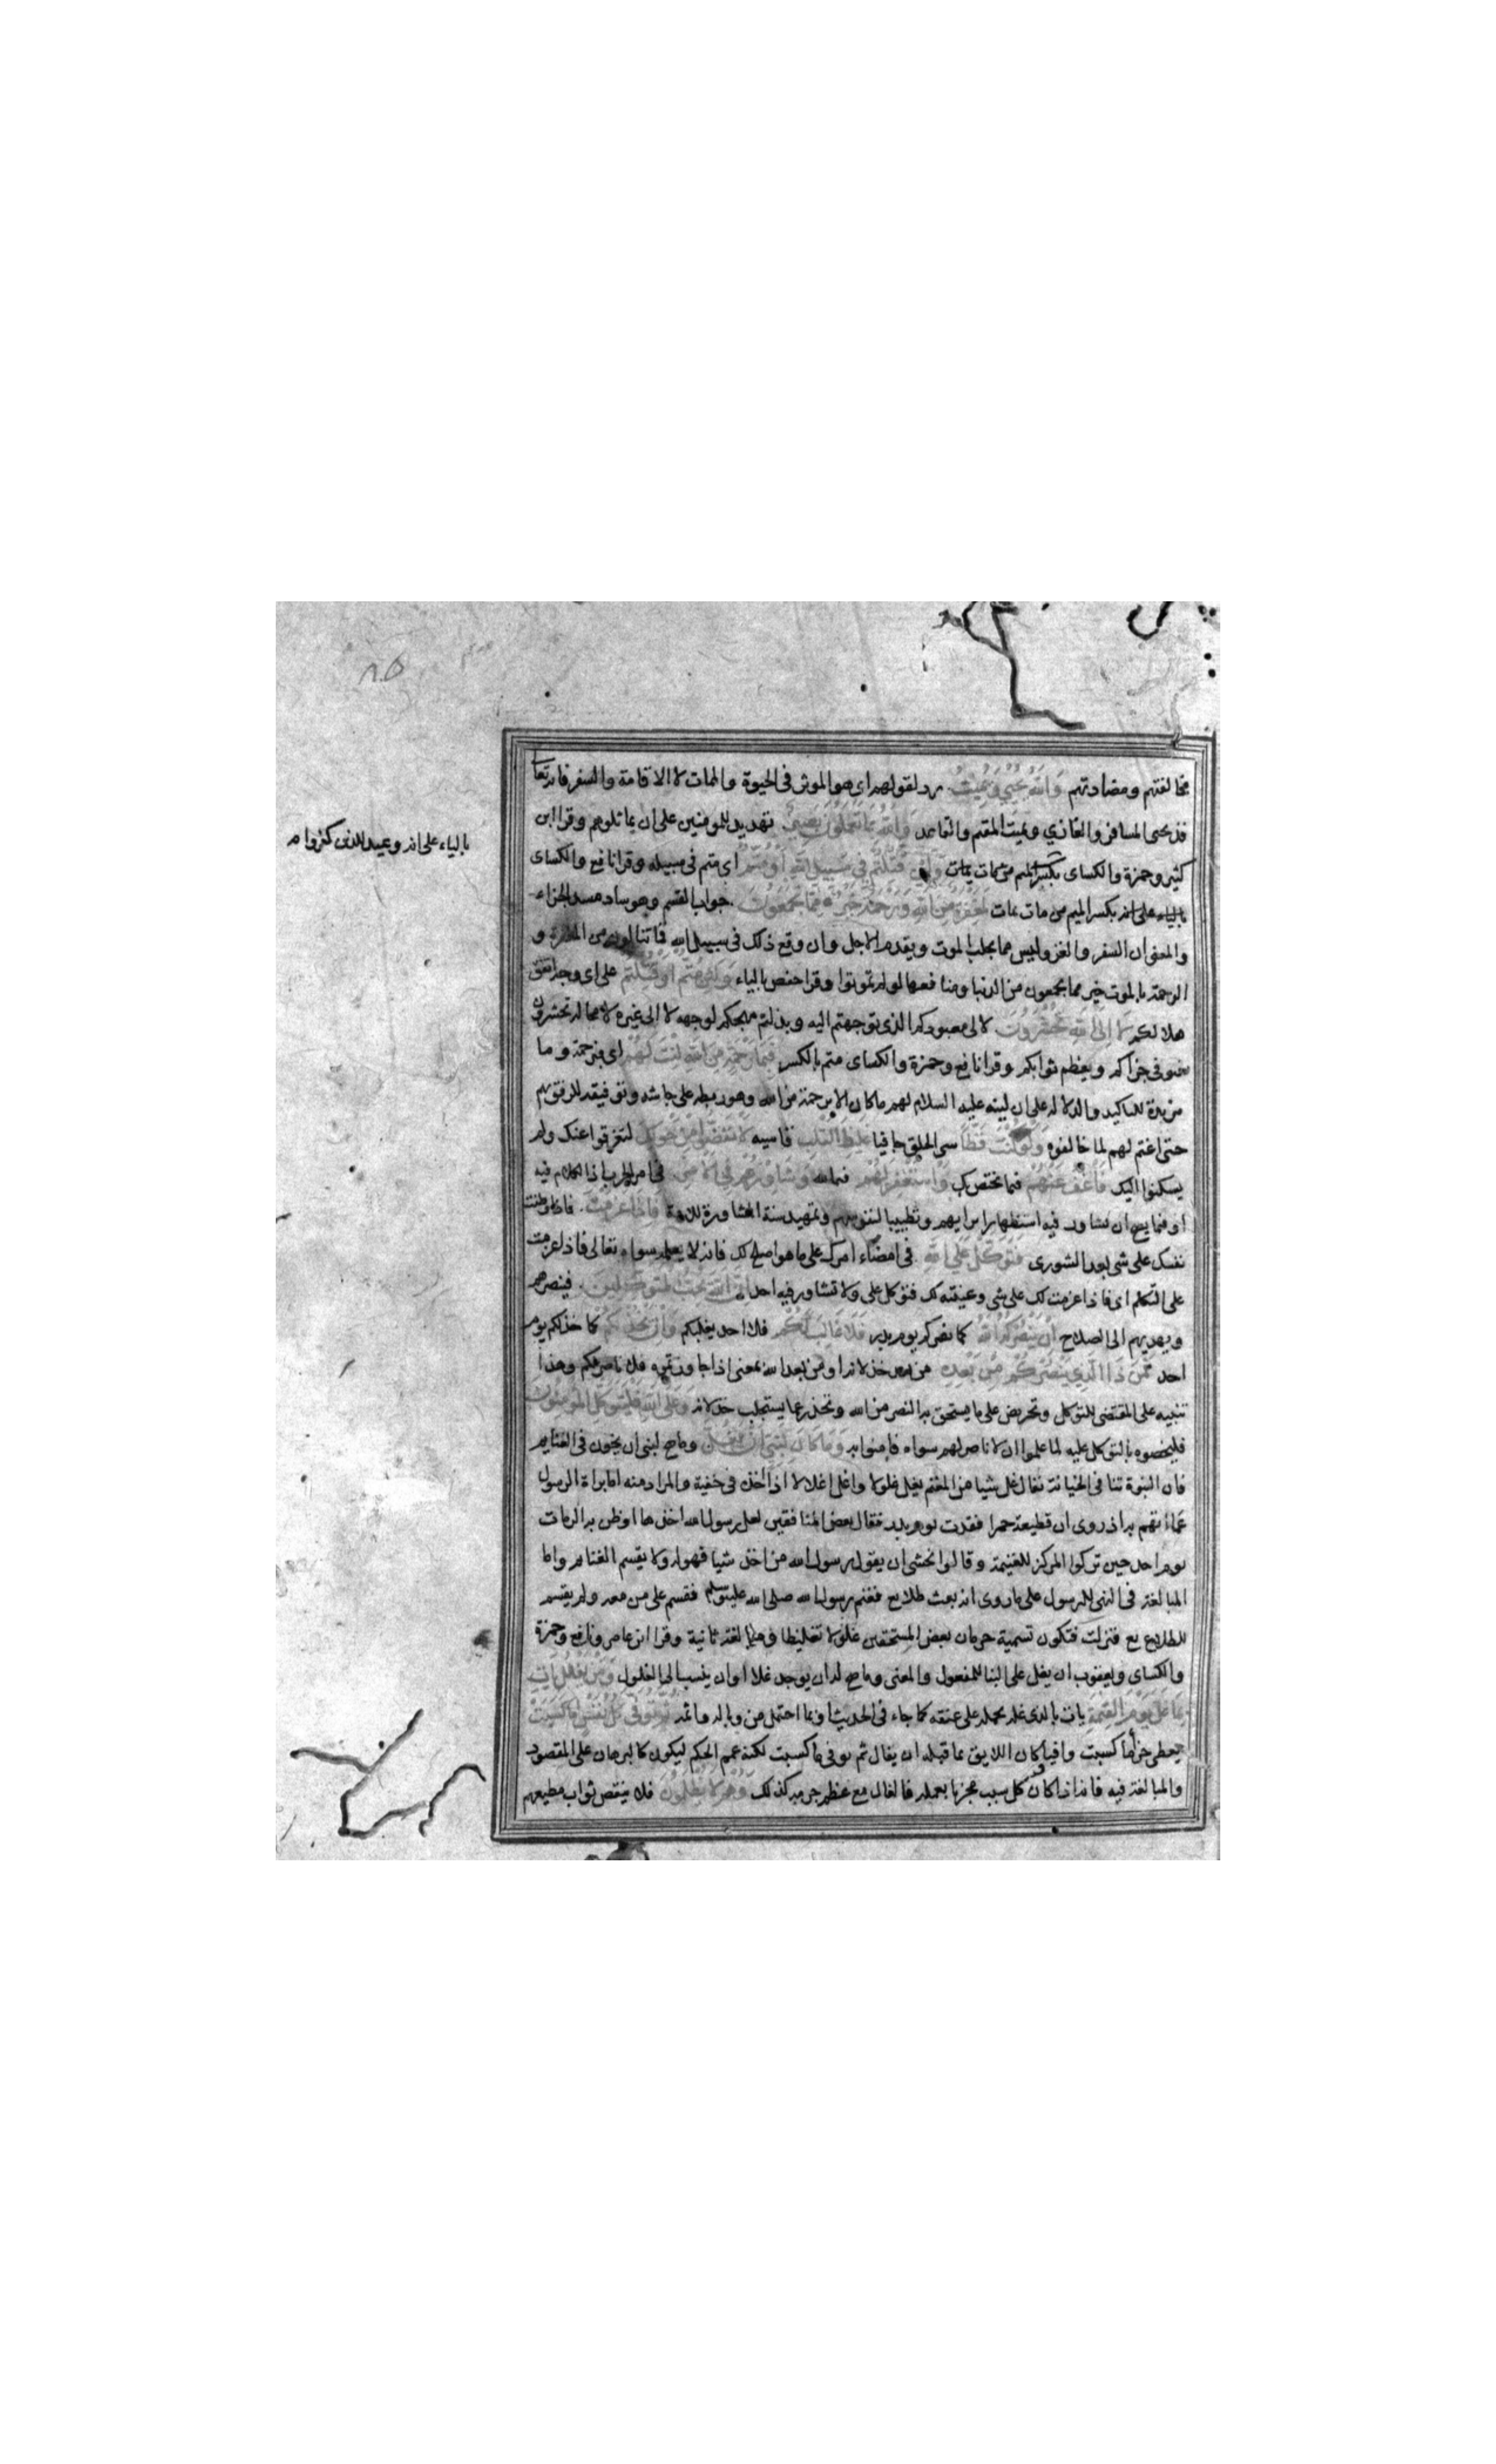 مخالفتهم ومضادتهم وَاللّهُ يُحْيِي وَيُمِيتُ رد لقولهم اى هو الموثر فى الحيوة والممات لا الاقامة والسفر فانه تعالى
قد يحيى المسافر والغازي ويميت المقيم والقاعد وَاللّهُ بِمَا تَعْمَلُونَ بَصِيرٌ تهديد للمومنين على ان يماثلوهم وقرا ابن
كثير وحمزة والكساى وَلَئِن قُتِلْتُمْ فِي سَبِيلِ اللّهِ أَوْ مُتُّمْ اى متم فى سبيله وقرا نافع والكساى
بكسر الميم من مات يمات لَمَغْفِرَةٌ مِنَ اللّهِ وَرَحْمَةٌ خَيْرٌ مِمَّا تَجْمَعُونَ جواب القسم وهو ساد مسد الجزاء
والمعنى ان السفر والغزو ليس مما يجلب الموت ويقدم الاجل وان وقع ذلك فى سبيل الله فما تنالون من المغفرة و
الرحمة بالموت خير مما تجمعون من الدنيا ومنافعها لو لم تموتوا وقرا حفص بالياء وَلَئِن مُتُّمْ أَوْ قُتِلْتُمْ على اى وجه اتفق
هلاككم لَإِلَى اللّهِ تُحْشَرُونَ لالى معبودكم الذى توجهتم اليه وبذلتم مهجكم لوجهه لا الى غيره لا محالة تحشرون
فيوفى جزاكم ويعظم ثوابكم وقرا نافع وحمزة والكساى متم بالكسر فَبِمَا رَحْمَةٍ مِنَ اللّهِ لِنْتَ لَهُمْ اى فبرحمة وما
مزيدة للتاكيد والدلالة على ان لينه عليه السلام لهم ما كان الا برحمة من الله وهو ربطه على جاشه وتوفيقه للرفق بهم
حتى اغتم لهم لما خالفوه وَلَوْ كُنْتَ فَظًّا سى الخلق جافيا غَلِيظَ الْقَلْبِ قاسيه لَانْفَضُّوا مِنْ حَوْلِكَ لتفرقوا عنك ولم
يسكنوا اليك فَاعْفُ عَنْهُمْ فيما يختص بك وَاسْتَغْفِرْ لَهُمْ فيما لله وَشَاوِرْهُمْ فِي الْأَمْرِ فى امر الحرب اذ الكلام فيه
او فيما يصح ان يشاور فيه استظهارا برايهم وتطييبا لنفوسهم وتمهيد سنة المشاورة للامة فَإِذَا عَزَمْتَ فاذا وطنت
نفسك على شى بعد الشورى فَتَوَكَّلْ عَلَى اللّهِ فى امضاء امرك على ما هو اصلح لك فانه لا يعلمه سواه تعالى فاذا عزمت
على التكلم اى فاذا عزمت لك على شى وعينته لك فتوكل على ولا تشاور فيه احدا إِنَّ اللّهَ يُحِبُّ الْمُتَوَكِّلِينَ فينصرهم
ويهديهم الى الصلاح إِنْ يَنْصُرْكُمُ اللّهُ كما نصركم يوم بدر فَلَا غَالِبَ لَكُمْ فلا احد يغلبكم وَإِنْ يَخْذُلْكُمْ كما خذلكم يوم
احد فَمَنْ ذَا الَّذِي يَنْصُرُكُمْ مِنْ بَعْدِهِ من بعد خذلانه او من بعد الله بمعنى اذا جاوزتموه فلا ناصر لكم وهذا
تنبيه على المقتضى للتوكل وتحريض على ما يستحق به النصر من الله وتحذير عما يستجلب خذلانه وَعَلَى اللّهِ فَلْيَتَوَكَّلِ الْمُؤْمِنُونَ
فليخصوه بالتوكل عليه لما علموا ان لا ناصر لهم سواه فامنوا به وَمَا كَانَ لِنَبِيٍّ أَنْ يَغُلَّ وما صح لنبى ان يخون فى الغنايم
فان النبوة تنافى الخيانة يقال غل شيا من المغنم يغل غلولا واغل اغلالا اذا اخذه فى خفية والمراد منه اما براة الرسول
عما اتهم به اذ روى ان قطيفة حمرا فقدت يوم بدر فقال بعض المنافقين لعل رسول الله اخذها او ظن به الرمات
يوم احد حين تركوا المركز للغنيمة وقالوا نخشى ان يقول رسول الله من اخذ شيا فهو له ولا يقسم الغنايم واما
المبالغة فى النهى للرسول على ما روى انه بعث طلايع فغنم رسول الله صلى الله عليه وسلم فقسم على من معه ولم يقسم
للطلايع فنزلت فتكون تسمية حرمان بعض المستحقين غلولا تغليظا ومبالغة ثانية وقرا ابن عامر ونافع وحمزة
والكساى ويعقوب ان يغل على البنا للمفعول والمعنى وما صح له ان يوجد غالا او ان ينسب الى الغلول وَمَنْ يَغْلُلْ يَأْتِ
بِمَا غَلَّ يَوْمَ الْقِيٰمَةِ يات بالذى غله يحمله على عنقه كما جاء فى الحديث او بما احتمل من وباله واثمه ثُمَّ تُوَفَّى كُلُّ نَفْسٍ مَا كَسَبَتْ
يعطى جزا ما كسبت وافيا كان اللايق بما قبله ان يقال ثم يوفى ما كسبت لكنه عمم الحكم ليكون كالبرهان على المقصود
والمبالغة فيه فانه اذا كان كل كسب مجزيا بعمله فالغال مع عظم جرمه كذلك وَهُمْ لَا يُظْلَمُونَ فلا ينقص ثواب مطيعهم
بالياء على انه وعيد للذين كفروا